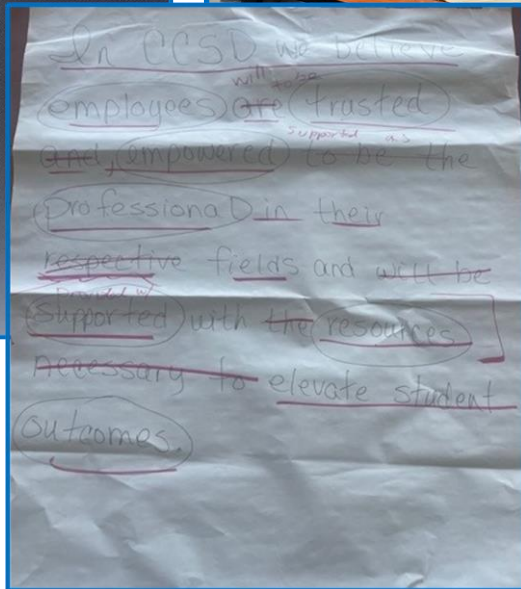 In CCSD we believe
will to be
employees are trusted
supported as
and, empowered to be the
professional in their
respective fields and will be
provided w/
supported with the resources
necessary to elevate student
outcomes.